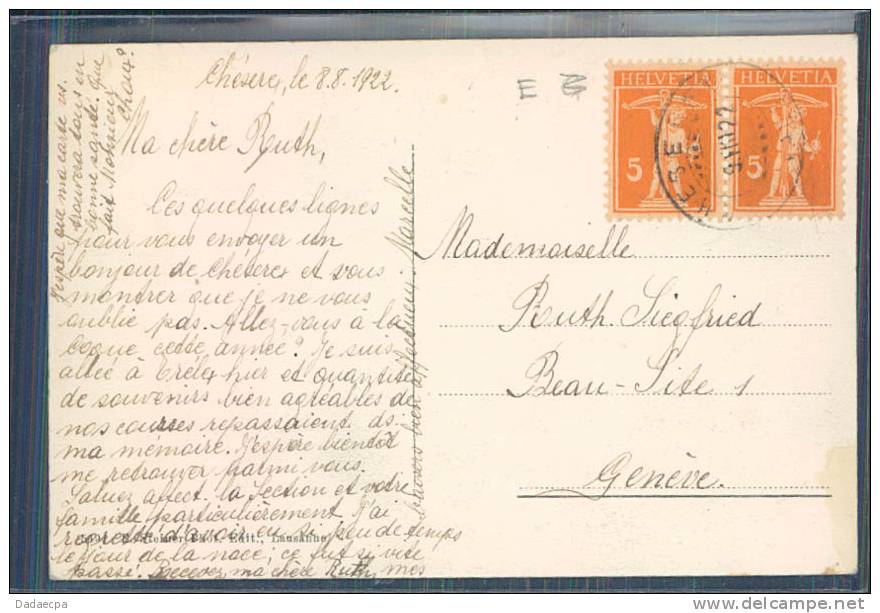 Chéserex, le 8.8.1922.
Ma chère Ruth,
Ces quelques lignes
pour vous envoyer un
bonjour de Chéserex et vous
montrer que je ne vous
oublie pas. Allez-vous à la
Coque cette année? Je suis
allée à Trélex hier et quantité
de souvenirs bien agréables de
nos courses repassaient ds.
ma mémoire. J'espère bientôt
me retrouver parmi vous.
Saluez affect. la Section et votre
famille particulièrement. J'ai
regretté d'avoir eu si peu de temps
le jour de la noce; ce fut si vite
passé. Recevez, ma chère Ruth, mes
bien affectueux. Marcelle.
J'espère que ma carte vs.
trouvera tous en
bonne santé. Que
fait Monsieur
Choux?
Phot. Edit., Lausanne
E
HELVETIA
5
HELVETIA
5
Mademoiselle
Ruth Siegfried
Beau-Site 1
Genève.
Dadaecpa
http://www.delcampe.net